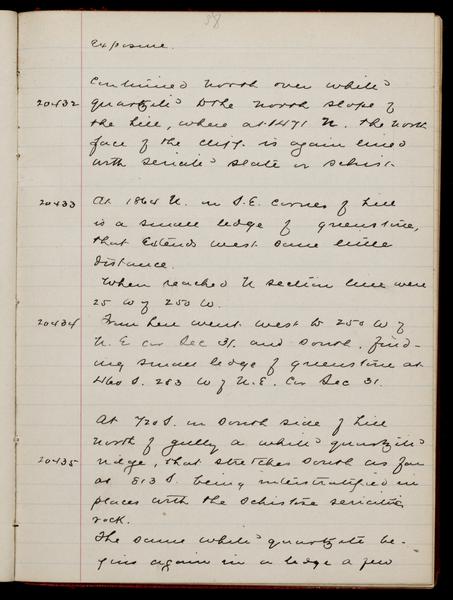 58
exposure.
Continued north over white
20432 quartzite to the north slope of
the hill, where at 1471 N. the north
face of the cliff is again lined
with sericitic slate or schist.
20433 At 1864 N. on S.E. corner of hill
is a small ledge of greenstone,
that extends west some little
distance.
When reached N section line were
25 W of 250 W.
20434 From here went west to 250 W of
N. E cor Sec 31. and south, find-
ing small ledge of greenstone at
460 S. 283 W of N.E. Cor Sec 31.
At 720 S. on south side of hill
north of gully a white quartzite
20435 ridge, that stretches south as far
as 813 S. being interstratified in
places with the schistose sericitic
rock.
The same white quartzite be-
gins again in a ledge a few